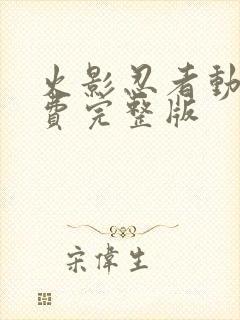 火影忍者動
費完整版
宋偉生